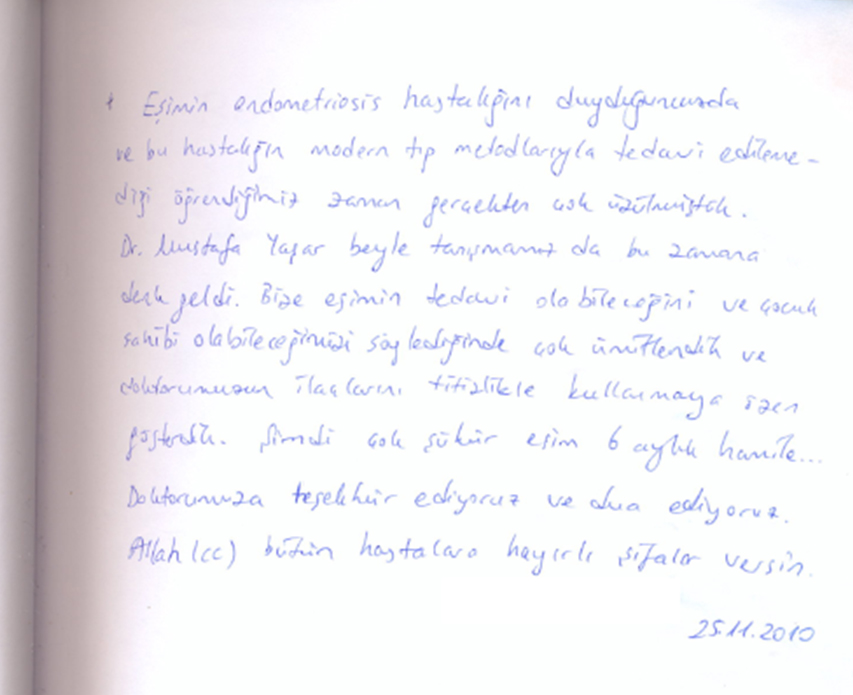 + Eşimin endometriosis hastalığını duyduğumuzda
ve bu hastalığın modern tıp metodlarıyla tedavi edileme-
diği öğrendiğimiz zaman gerçekten çok üzülmüştük.
Dr. Mustafa Yaşar beyle tanışmamız da bu zamana
denk geldi. Bize eşimin tedavi olabileceğini ve çocuk
sahibi olabileceğimizi söylediğinde çok ümitlendik ve
doktorumuzun ilaçlarını titizlikle kullanmaya özen
gösterdik. Şimdi çok şükür eşim 6 aylık hamile...
Doktorumuza teşekkür ediyoruz ve dua ediyoruz.
Allah (cc) bütün hastalara hayırlı şifalar versin.
25.11.2010